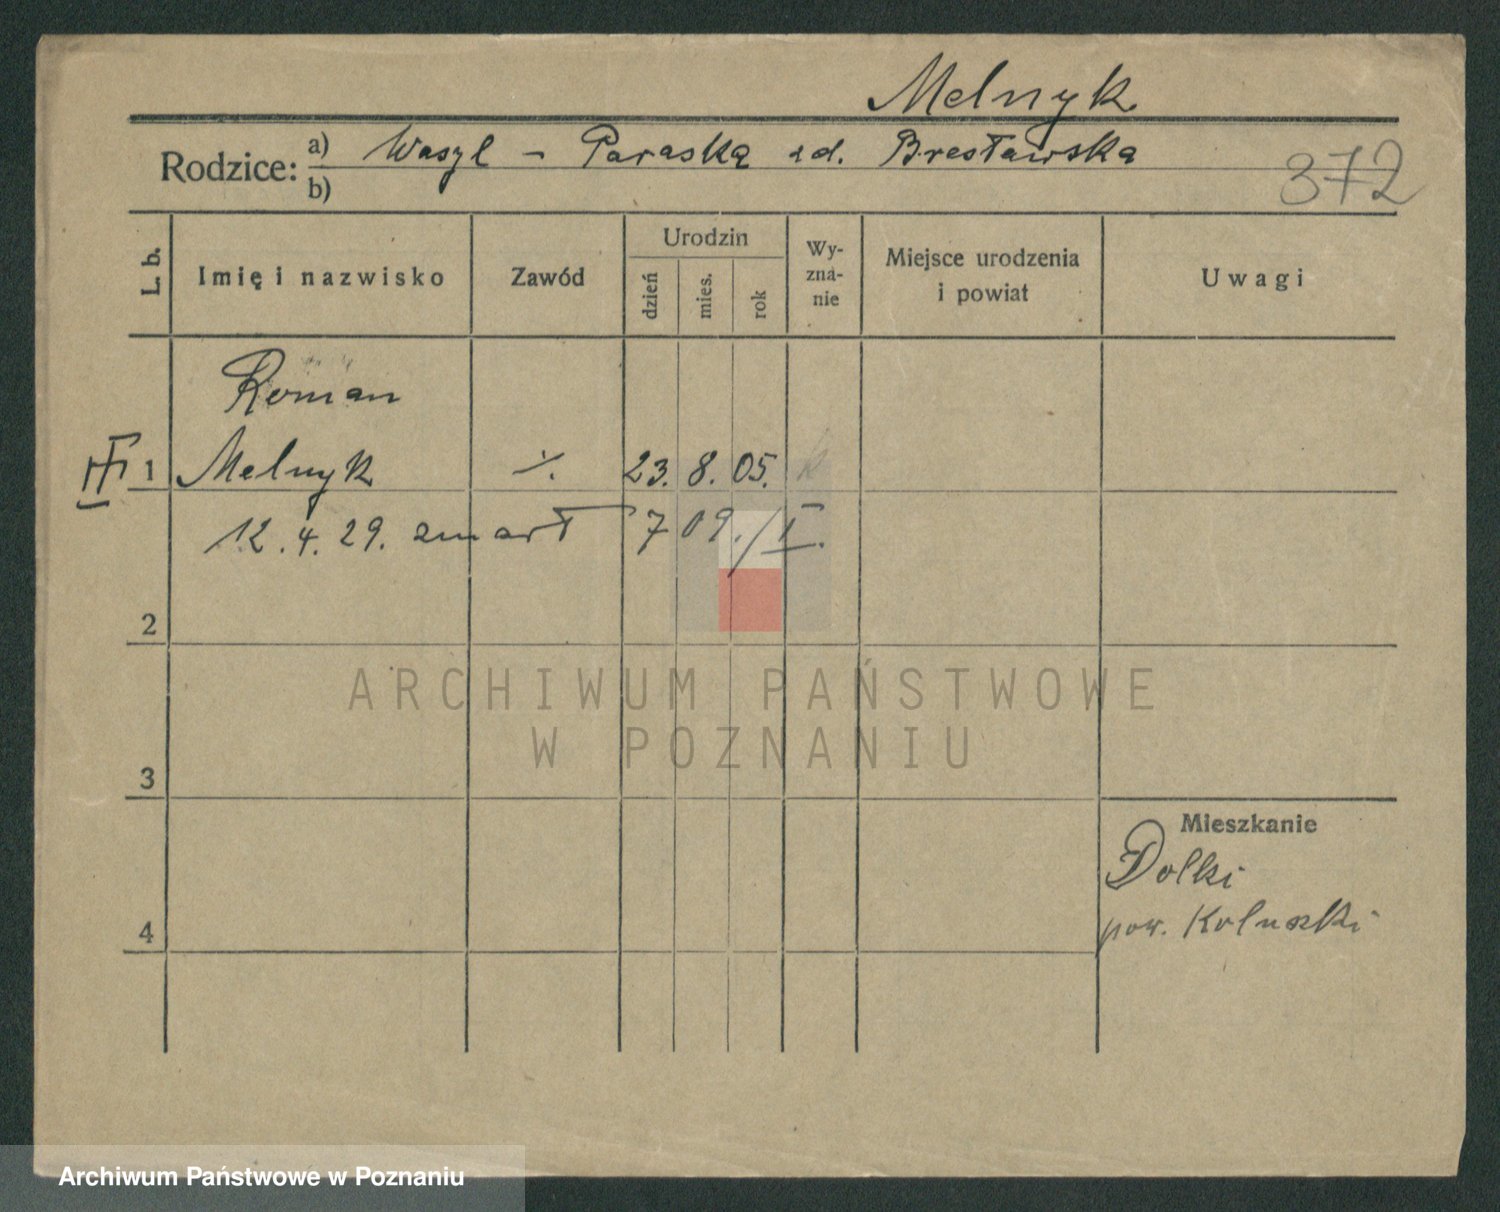 Melnyk
Rodzice: a) Wasyl – Paraska zd. Bresławska
b)
372
L. b.
Imię i nazwisko
Zawód
Urodzin
dzień
mies.
rok
Wy-
zna-
nie
Miejsce urodzenia
i powiat
Uwagi
Roman
1 Melnyk ·/. 23. 8. 05.
12. 4. 29. zmarł 709./I.
2
ARCHIWUM PAŃSTWOWE
W POZNANIU
3
Mieszkanie
Dolki
pow.
4
Archiwum Państwowe w Poznaniu